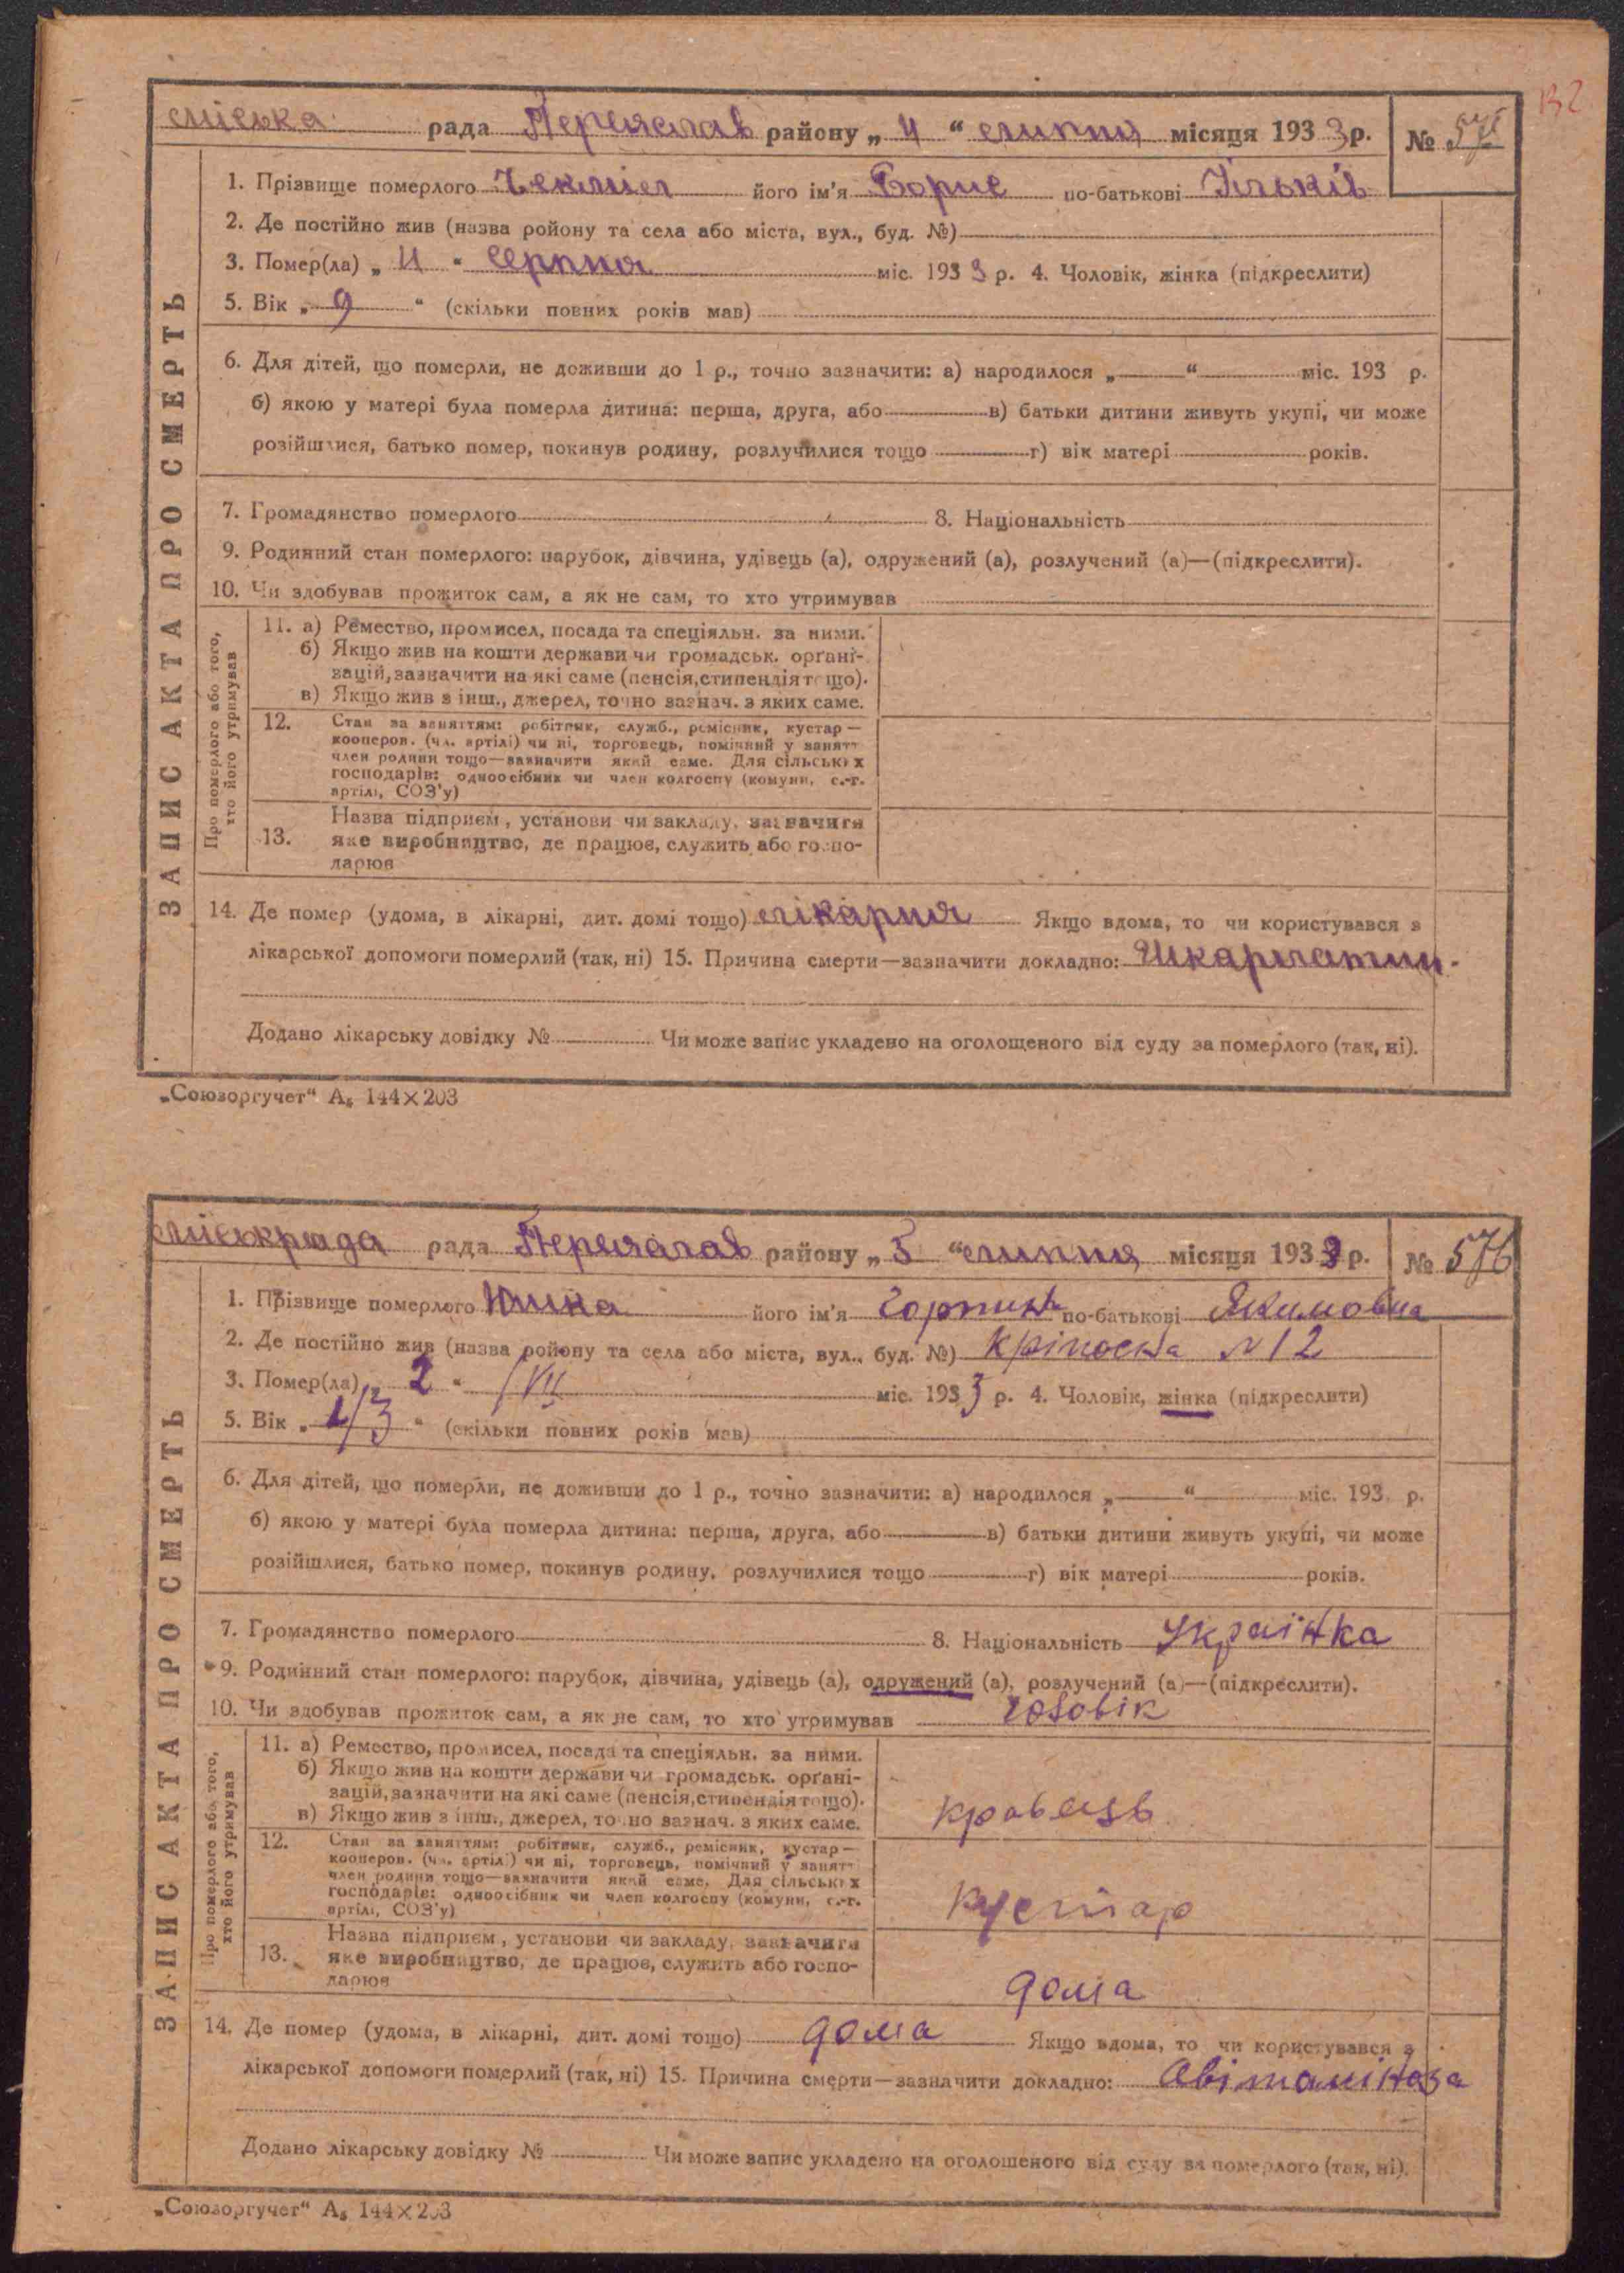 132
міська рада Переяслав району „ 4 “ липня місяця 1933 р. № 575
1. Прізвище померлого його ім'я Борис по-батькові Ільків
2. Де постійно жив (назва ройону та села або міста, вул., буд. №)
3. Помер(ла) „ 4 “ Серпня міс. 1933 р. 4. Чоловік, жінка (підкреслити)
5. Вік „ 9 “ (скільки повних років мав)
6. Для дітей, що померли, не доживши до 1 р., точно зазначити: а) народилося „ “ міс. 193 р.
б) якою у матері була померла дитина: перша, друга, або в) батьки дитини живуть укупі, чи може
розійшлися, батько помер, покинув родину, розлучилися тощо г) вік матері років.
7. Громадянство померлого 8. Національність
9. Родинний стан померлого: парубок, дівчина, удівець (а), одружений (а), розлучений (а)—(підкреслити).
10. Чи здобував прожиток сам, а як не сам, то хто утримував
11. а) Ремество, промисел, посада та спеціяльн. за ними.
б) Якщо жив на кошти держави чи громадськ. орґані-
зацій, зазначити на які саме (пенсія, стипендія тощо).
в) Якщо жив з інш., джерел, точно зазнач. з яких саме.
12. Стан за заняттям: робітник, служб., ремісник, кустар—
кооперов. (чл. артілі) чи ні, торговець, помічний у занятт
член родини тощо—зазначити який саме. Для сільських
господарів: одноосібник чи член колгоспу (комуни, с.-г.
артілі, СОЗ'у)
Назва підприєм, установи чи закладу, зазначити
13. яке виробництво, де працює, служить або госпо-
дарює
14. Де помер (удома, в лікарні, дит. домі тощо) лікарня Якщо вдома, то чи користувався з
лікарської допомоги померлий (так, ні) 15. Причина смерти—зазначити докладно: Шкарлатин.
Додано лікарську довідку № Чи може запис укладено на оголошеного від суду за померлого (так, ні).
ЗАПИС АКТА ПРО СМЕРТЬ
Про померлого або того,
хто його утримував
„Союзоргучет“ А₅ 144×203
міськрада рада Переяслав району „ 5 “ липня місяця 1933 р. № 576
1. Прізвище померлого його ім'я Горпина по-батькові Якимовна
2. Де постійно жив (назва ройону та села або міста, вул., буд. №) Кріпосна №12
3. Помер(ла) „ 2 “ /VII міс. 1933 р. 4. Чоловік, жінка (підкреслити)
5. Вік „ “ (скільки повних років мав)
6. Для дітей, що померли, не доживши до 1 р., точно зазначити: а) народилося „ “ міс. 193 р.
б) якою у матері була померла дитина: перша, друга, або в) батьки дитини живуть укупі, чи може
розійшлися, батько помер, покинув родину, розлучилися тощо г) вік матері років.
7. Громадянство померлого 8. Національність Українка
9. Родинний стан померлого: парубок, дівчина, удівець (а), одружений (а), розлучений (а)—(підкреслити).
10. Чи здобував прожиток сам, а як не сам, то хто утримував чоловік
11. а) Ремество, промисел, посада та спеціяльн. за ними.
б) Якщо жив на кошти держави чи громадськ. орґані-
зацій, зазначити на які саме (пенсія, стипендія тощо).
в) Якщо жив з інш., джерел, точно зазнач. з яких саме.
кравець
12. Стан за заняттям: робітник, служб., ремісник, кустар—
кооперов. (чл. артілі) чи ні, торговець, помічний у занятт
член родини тощо—зазначити який саме. Для сільських
господарів: одноосібник чи член колгоспу (комуни, с.-г.
артілі, СОЗ'у)
Кустар
Назва підприєм, установи чи закладу, зазначити
13. яке виробництво, де працює, служить або госпо-
дарює
дома
14. Де помер (удома, в лікарні, дит. домі тощо) дома Якщо вдома, то чи користувався з
лікарської допомоги померлий (так, ні) 15. Причина смерти—зазначити докладно: Авітаміноза
Додано лікарську довідку № Чи може запис укладено на оголошеного від суду за померлого (так, ні).
ЗАПИС АКТА ПРО СМЕРТЬ
Про померлого або того,
хто його утримував
„Союзоргучет“ А₅ 144×203